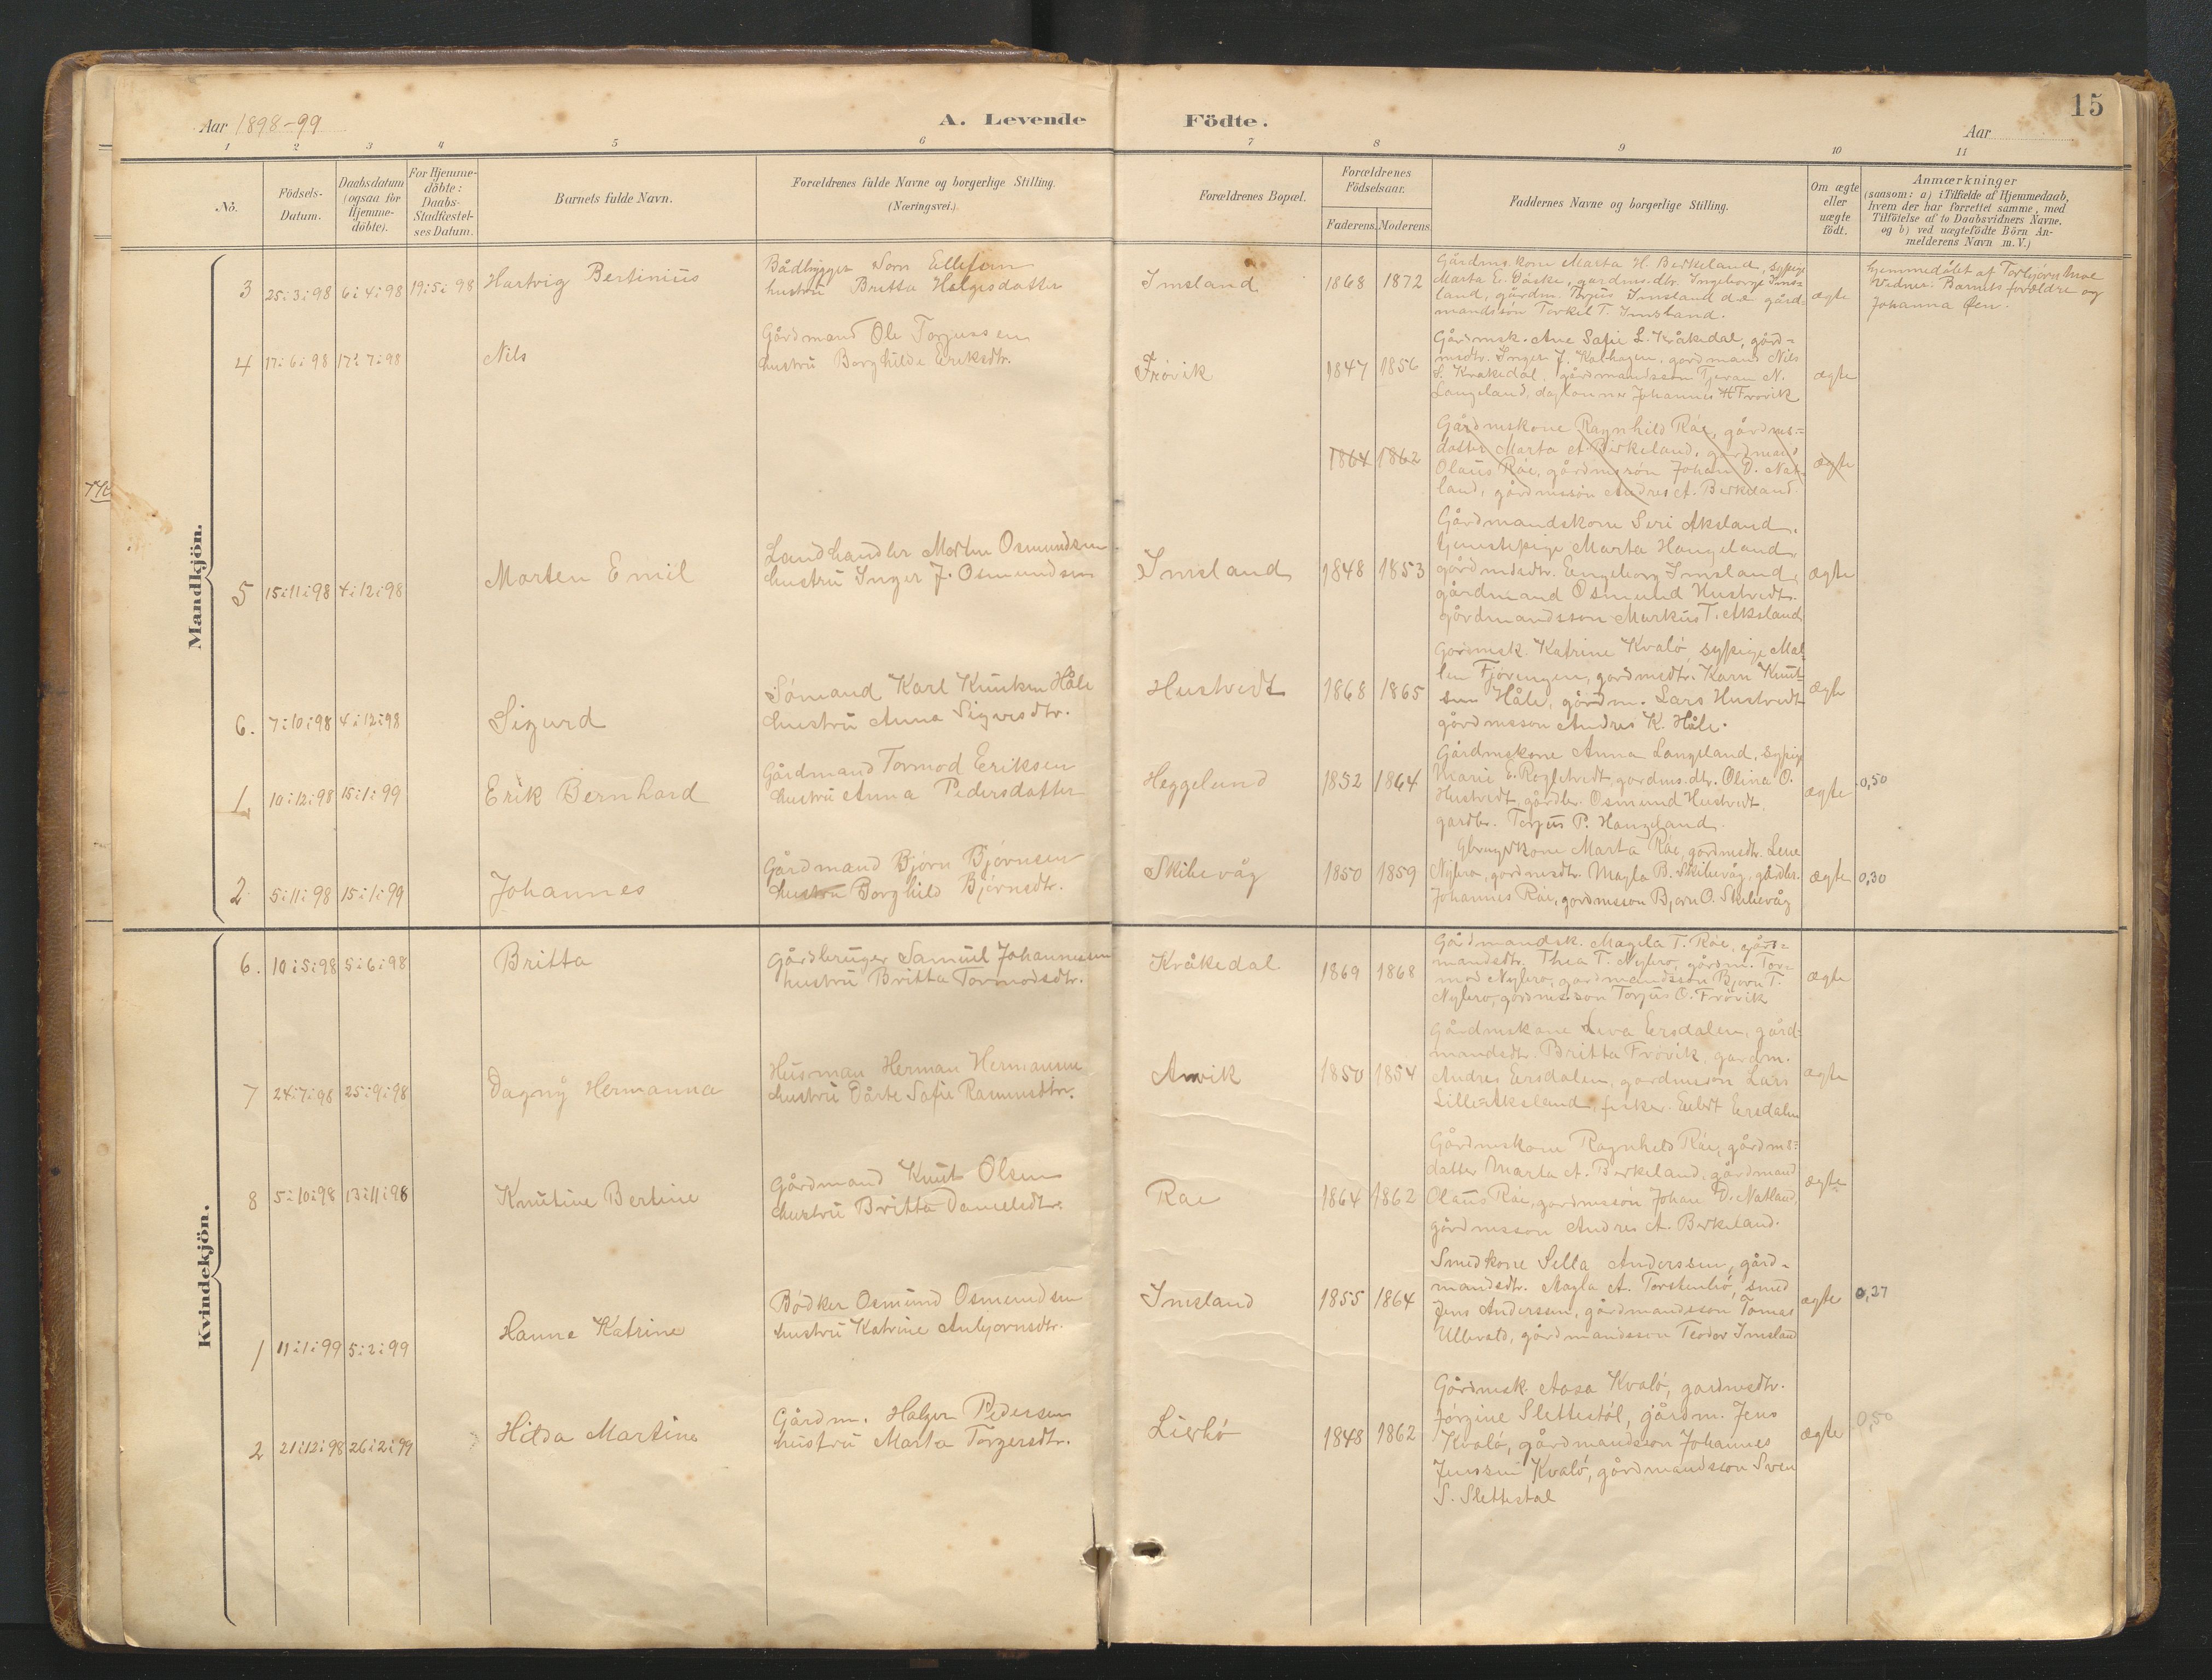 Aar 1898-99
A. Levende Födte.
Aar
15
1 2 3 4 5 6 7 8 9 10 11
No.
Födsels-
Datum.
Daabsdatum
(ogsaa for
Hjemme-
döbte).
For Hjemme-
döbte:
Daabs-
Stadfæstel-
ses Datum.
Barnets fulde Navn.
Forældrenes fulde Navne og borgerlige Stilling.
(Næringsvei.)
Forældrenes Bopæl.
Forældrenes
Födselsaar.
Faderens. Moderens.
Faddernes Navne og borgerlige Stilling.
Om ægte
eller
uægte
födt.
Anmærkninger
(saasom: a) i Tilfælde af Hjemmedaab,
hvem der har forrettet samme, med
Tilföielse af to Daabsvidners Navne.
og b) ved uægtefödte Börn An-
melderens Navn m. V.)
Mandkjön.
3 25:3:98 6:4:98 19:5:98 Hartvig Bertinius
Bådbygger Sørn Ellefsen
hustru Britta Helgesdatter
Imsland 1868 1872
Gårdms.kone Marta H. Birkeland, sypige
Marta E. gårdms.dtr. Ingeborg Ims-
land, gårdm. Torjus Imsland d.e. gård-
mandssøn Torkel T. Imsland.
ægte
hjemmedøbt af Torbjørn Moe
Vidner: Barnets forældre og
Johanna Øen.
4 17:6:98 17:7:98 Nils
Gårdmand Ole Torjussen
hustru Borghilde Eriksdtr.
Frövik 1847 1856
Gårdmsk. Ane Safie L. Kråkedal, gård-
msdtr. Inger J. Kalhagen, gårdmand Nils
S. Kråkedal, gårdmandssøn Tjeran N.
Langeland, daglønner Johannes H Frövik
ægte
1864 1862
Gårdmskone Ragnhild Råe, gårdms-
datter Marta A. Birkeland, gårdmand
Olaus Råe, gårdmssøn Johan D. Nat-
land, gårdmssøn Andres A. Birkeland.
ægte
5 15:11:98 4:12:98 Morten Emil
Landhandler Morten Osmundsen
hustru Inger J. Osmundsen
Imsland 1848 1853
Gårdmandskone Seri Aksland,
tjenestepige Marta Haugeland,
gårdmsdtr. Engeborg Imsland,
gårdmand Osmund Hustvedt.
gårdmandssøn Markus T. Aksland
ægte
6. 7:10:98 4:12:98 Sigurd
Sömand Karl Knutsen Håle
hustru Anna Sigvesdtr.
Hustvedt 1868 1865
Gårdmsk. Katrine Kvalö, sypige Mal-
len Fjövengen, gårdmsdtr. Karn Knut-
sen Håle, gårdm. Lars Hustvedt
gårdmssøn Andres K. Håle.
ægte
1. 10:12:98 15:1:99 Erik Bernhard
Gårdmand Tormod Eriksen
hustru Anna Pedersdatter
Heggelund 1852 1864
Gårdmskone Anna Langeland, sypige
Marie E. gårdms.dtr. Olina O.
Hustvedt, gårdbr. Osmund Hustvedt,
gardbr. Torjus P. Haugeland.
ægte 0,50
2. 5:11:98 15:1:99 Johannes
Gårdmand Bjørn Bjørnsen
hustru Borghild Bjørnsdtr.
Skibevåg 1850 1859
kone Marta Råe, gårdmsdtr. Lene
Nybro, gårdmsdtr. Magla B. Skibevåg, gårdbr.
Johannes Råe, gårdmssøn Bjørn O. Skibevåg
ægte 0,30
Kvindekjön.
6. 10:5:98 5:6:98 Britta
Gårdbruger Samuel Johannessen
hustru Britta Tormodsdtr.
Kråkedal 1869 1868
Gårdmandsk. Magela T. Råe, gård-
mandsdtr. Thea T. Nybro, gårdm. Tor-
mod Nybro, gårdmandssøn Bjørn T.
Nybro, gårdmssøn Torjus O. Frövik
ægte
7 24:7:98 25:9:98 Dagny Hermanna
Husman Herman Hermansen
hustru Dårte Safie Rasmusdtr.
Anvik 1850 1854
Gårdmskone Liva Ersdalen, gård-
mandsdtr. Britta Frövik, gårdm.
Andres Ersdalen, gårdmssøn Lars
Lille-Aksland, fisker. Eilert Ersdalen
ægte
8 5:10:98 13:11:98 Knutine Bertine
Gårdmand Knut Olsen
hustru Britta Danieledtr.
Rae 1864 1862
Gårdmskone Ragnhild Råe, gårdms-
datter Marta A. Birkeland, gårdmand
Olaus Råe, gårdmssøn Johan D. Natland,
gårdmssøn Andres A. Birkeland.
ægte
1 11:1:99 5:2:99 Hanne Katrine
Bödker Osmund Osmundsen
hustru Katrine Anbjørnsdtr.
Imsland 1855 1864
Smedkone Sella Anderssen, gård-
mandsdtr. Magla A. Torstenbö, smed
Jens Anderssen, gårdmandssøn Tomas
Ullevold, gårdmandssøn Teodor Imsland
ægte 0,27
2 21:12:98 26:2:99 Hilda Martine
Gårdm. Halgeir Pedersen
hustru Marta Torgersdtr.
Lierbö 1848 1862
Gårdmsk. Aasa Kvalö, gardmsdtr.
Jörgine Slettestöl, gårdm. Jens
Kvalö, gårdmandssøn Johannes
Jenssen Kvalö, gårdmandssøn Sven
S. Slettestøl
ægte 0,50